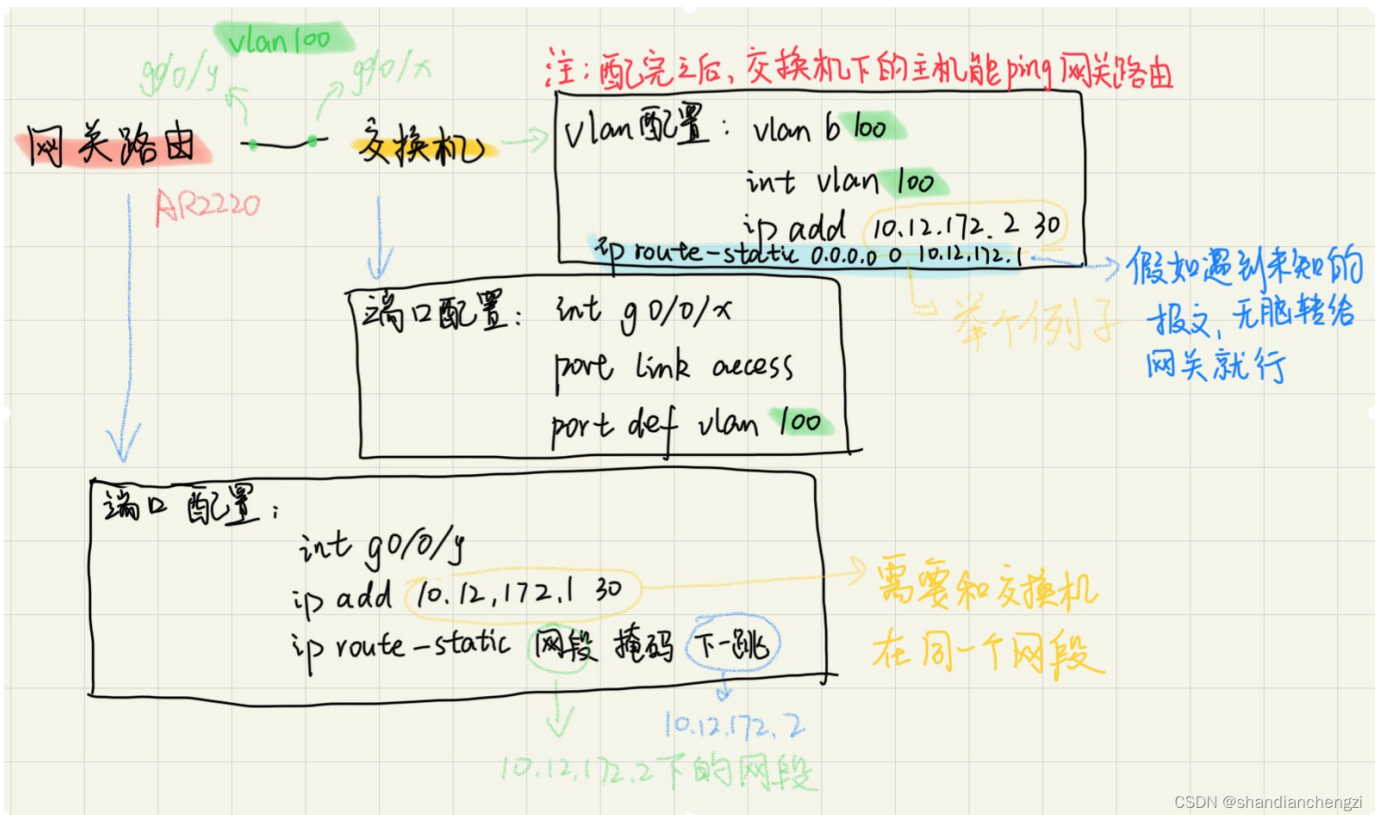 vlan100
g0/0/y
g0/0/x
注：配完之后，交换机下的主机能ping网关路由
网关路由
交换机
AR2220
vlan配置：vlan b 100
int vlan 100
ip add 10.12.172.2 30
ip route-static 0.0.0.0 0 10.12.172.1
举个例子
假如遇到未知的
报文，无脑转给
网关就行
端口配置：int g0/0/x
port link access
port def vlan 100
端口配置：
int g0/0/y
ip add 10.12.172.1 30
ip route-static 网段 掩码 下一跳
需要和交换机
在同一个网段
10.12.172.2
10.12.172.2下的网段
CSDN @shandianchengzi